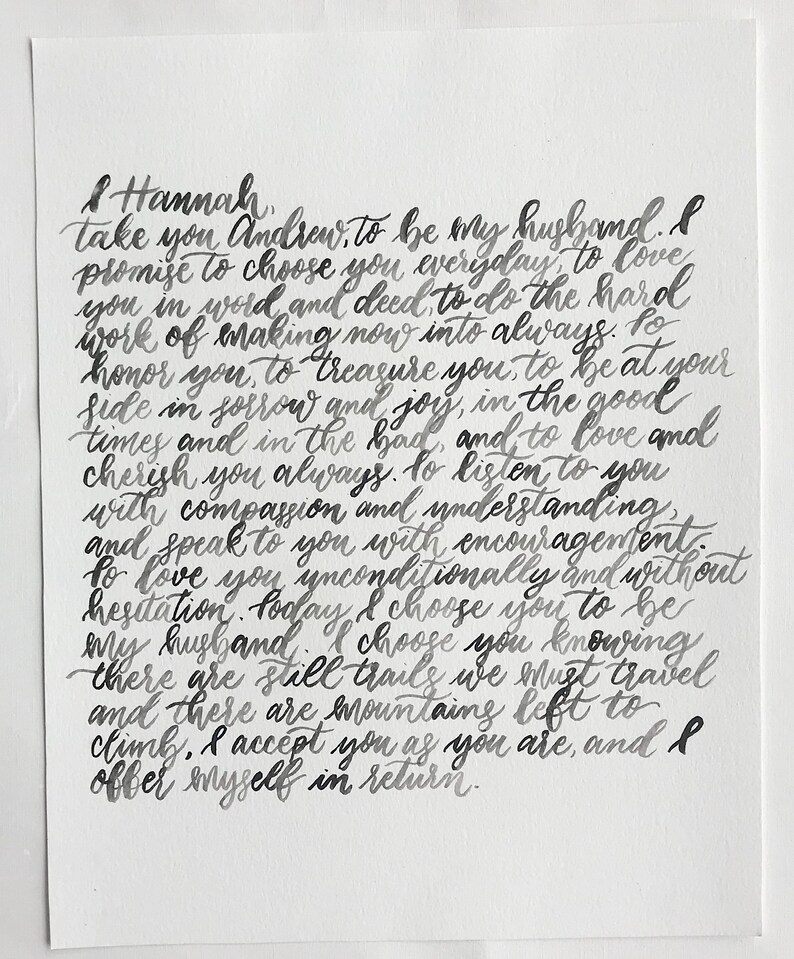 I Hannah,
take you Andrew, to be my husband. I
promise to choose you everyday, to love
you in word and deed, to do the hard
work of making now into always. To
honor you, to treasure you, to be at your
side in sorrow and joy, in the good
times and in the bad, and to love and
cherish you always. To listen to you
with compassion and understanding,
and speak to you with encouragement.
To love you unconditionally and without
hesitation. Today I choose you to be
my husband. I choose you knowing
there are still trails we must travel
and there are mountains left to
climb. I accept you as you are, and I
offer myself in return.